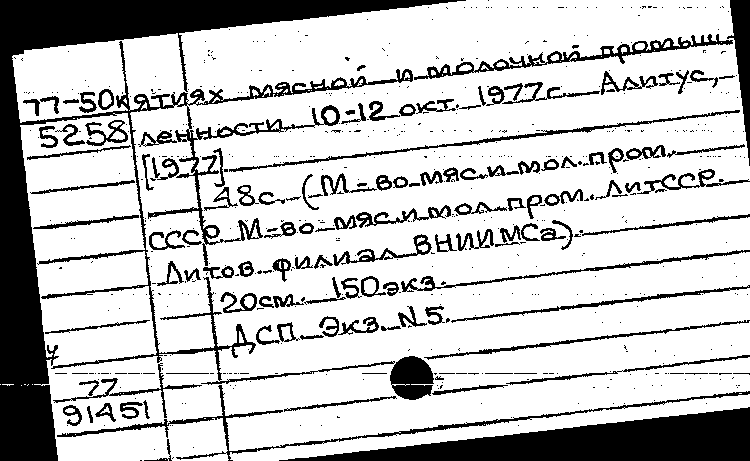 77-50к ятиях мясной и молочной промыш-
5258 ленности. 10-12 окт. 1977г. Алитус,
[1977]
48с. (М-во мяс. и мол. пром.
СССР М-во мяс. и мол. пром. ЛитССР.
Литов. филиал ВНИИМСа).
20см. 150экз.
ДСП. Экз. N5.
77
91451